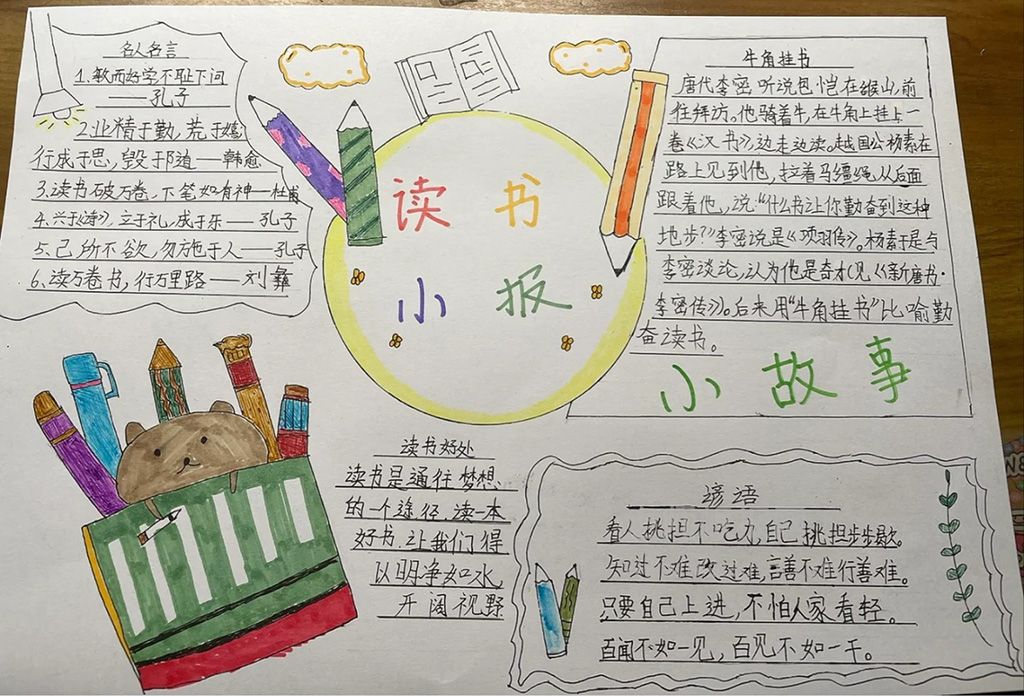 名人名言
1.敏而好学不耻下问
——孔子
2.业精于勤,荒于嬉
行成于思,毁于随——韩愈
3.读书破万卷,下笔如有神—杜甫
4.兴于《诗》,立于礼,成于乐——孔子
5.己所不欲,勿施于人——孔子
6.读万卷书,行万里路——刘彝
读书
小报
牛角挂书
唐代李密听说包恺在缑山,前
往拜访。他骑着牛,在牛角上挂上一
卷《汉书》,边走边读。越国公杨素在
路上见到他,拉着马缰绳,从后面
跟着他,说:“什么书让你勤奋到这种
地步?”李密说是《项羽传》。杨素于是与
李密谈论,认为他是奇才(见《新唐书·
李密传》)。后来用“牛角挂书”比喻勤
奋读书。
小故事
读书好处
读书是通往梦想、
的一个途径,读一本
好书,让我们得
以明净如水,
开阔视野
谚语
看人挑担不吃力,自己挑担步步歇。
知过不难改过难,言善不难行善难。
只要自己上进,不怕人家看轻。
百闻不如一见,百见不如一干。